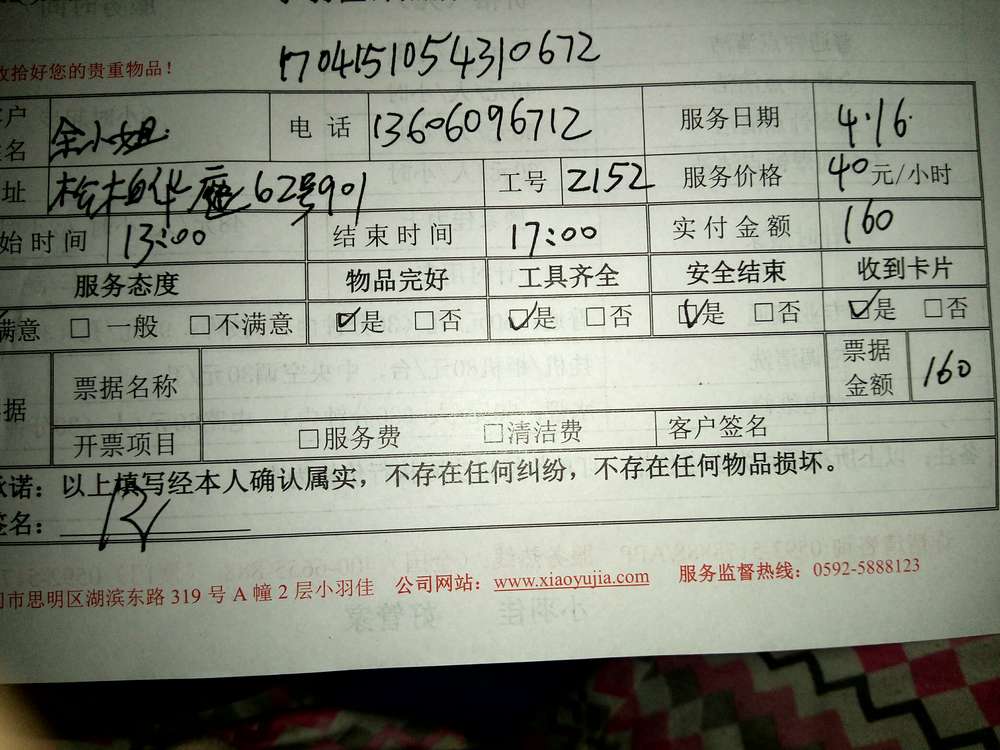 收拾好您的贵重物品！
1704151054310672
户 余小姐 电 话 13606096712 服务日期 4.16.
名
址 桧柏华庭62号901 工号 2152 服务价格 40元/小时
始时间 13:00 结束时间 17:00 实付金额 160
服务态度 物品完好 工具齐全 安全结束 收到卡片
满意 □ 一般 □不满意 ☑是 □否 ☑是 □否 ☑是 □否 ☑是 □否
据 票据名称 票据金额 160
开票项目 □服务费 □清洁费 客户签名
承诺：以上填写经本人确认属实，不存在任何纠纷，不存在任何物品损坏。
签名：
门市思明区湖滨东路 319 号 A 幢 2 层小羽佳 公司网站：www.xiaoyujia.com 服务监督热线：0592-5888123